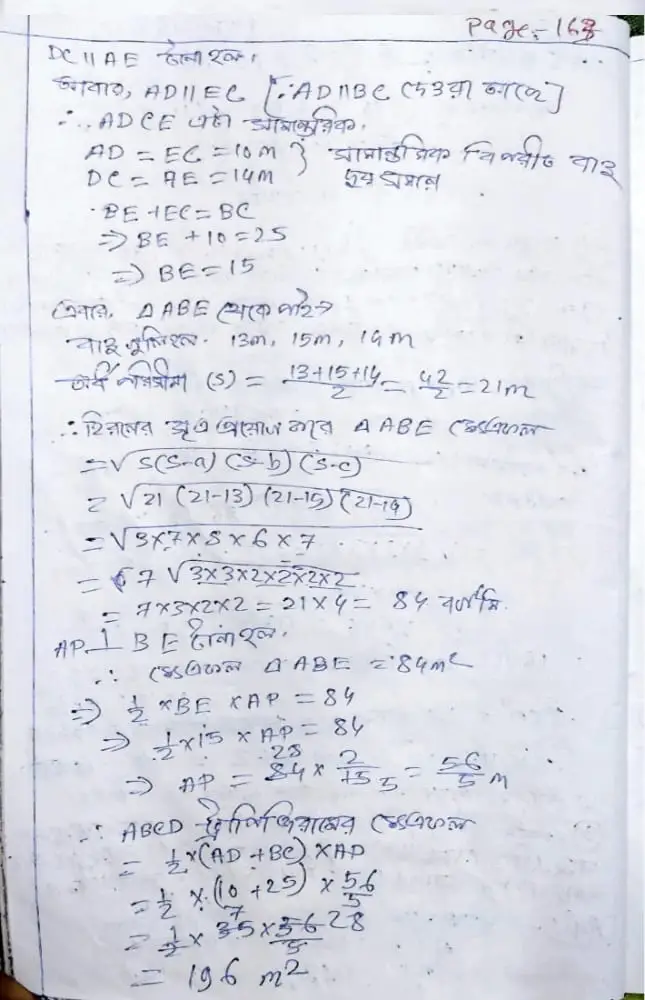 Page: 168
DC || AE টানা হল।
আবার, AD || EC [∵ AD || BC দেওয়া আছে]
∴ ADCE এটা সামান্তরিক.
AD = EC = 10 m } সামান্তরিক বিপরীত বাহু
DC = AE = 14 m } দ্বয় সমান
BE + EC = BC
⇒ BE + 10 = 25
⇒ BE = 15
এবার, △ ABE থেকে পাই →
বাহু গুলি হল. 13m, 15m, 14 m
অর্ধ পরিসীমা (s) = 13+15+14/2 = 42/2 = 21 m
∴ হিরণের সূত্র প্রয়োগ করে △ ABE ক্ষেত্রফল
= √s(s-a) (s-b) (s-c)
= √21 (21-13) (21-15) (21-14)
= √3×7×8×6×7
= 7 √3×3×2×2×2×2
= 7×3×2×2 = 21×4 = 84 বর্গমি.
AP ⊥ BE টানা হল.
∴ ক্ষেত্রফল △ ABE = 84 m²
⇒ 1/2 × BE × AP = 84
⇒ 1/2 × 15 × AP = 84
⇒ AP = 84 28 × 2/15 5 = 56/5 m
∴ ABCD ট্রাপিজিয়ামের ক্ষেত্রফল
= 1/2 × (AD + BC) × AP
= 1/2 × (10 + 25) × 56/5
= 1/2 × 35 7 × 56/5 28
= 196 m²